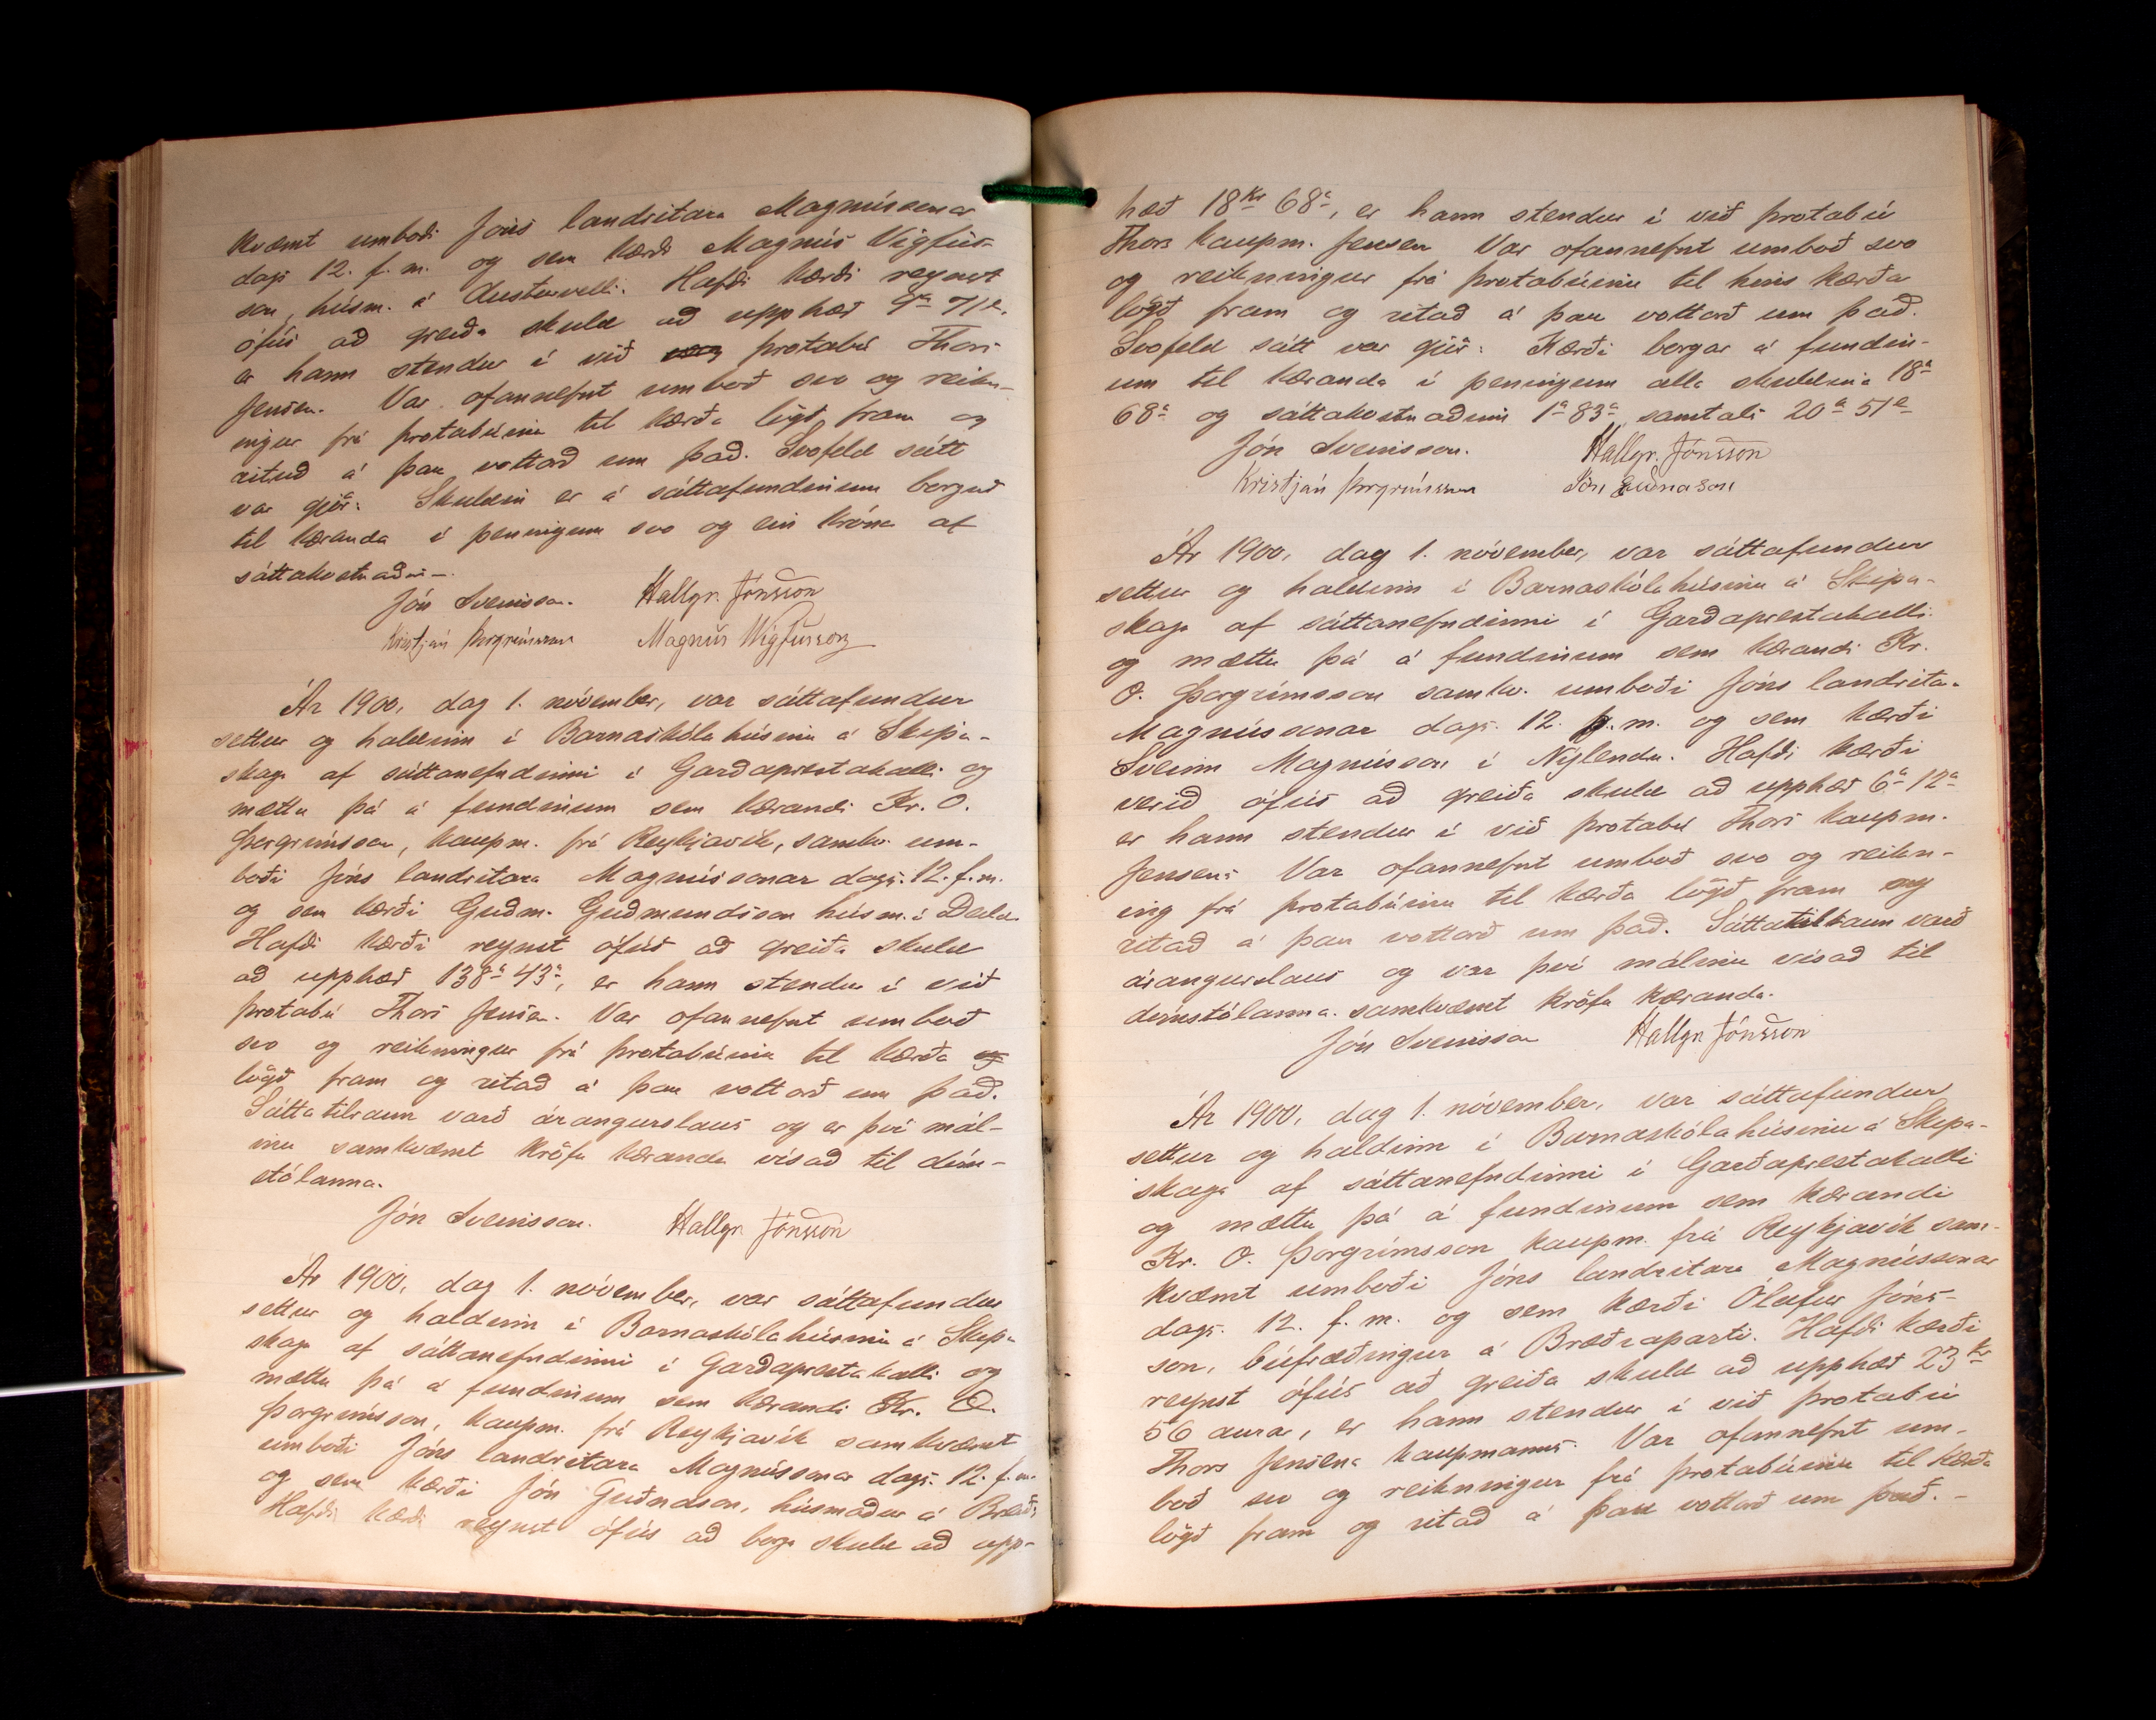 kvæmt umboði Jóns landritara Magnússonar
dags 12. f. m. og sem kærði Magnús Vigfús-
son, húsm. á Austurvelli. Hafði kærði reynst
ófús að greiða skuld að upphæð 9 kr 71 a.
er hann stendur í við þrotabú Thors
Jensen. Var ofannefnt umboð svo og reikn-
ingur frá þrotabúinu til kærða lögð fram og
rituð á þau vottorð um það. Svofeld sátt
var gjör: Skuldin er á sáttafundinum borguð
til kæranda í peningum svo og ein króna af
sáttakostnaði.
Jón Sveinsson. Hallgr. Jónsson
Kristján Þorgrímsson Magnús Vigfússon
Ár 1900, dag 1. nóvember, var sáttafundur
settur og haldinn í Barnaskólahúsinu á Skipa-
skaga af sáttanefndinni í Garðaprestakalli og
mættu þá á fundinum sem kærandi Kr. O.
Þorgrímsson, kaupm. frá Reykjavík, samkv. um-
boði Jóns landritara Magnússonar dags. 12. f. m.
og sem kærði Guðm. Guðmundsson húsm. í
Hafði kærði reynst ófús að greiða skuld
að upphæð 138 a 43 a, er hann stendur í við
þrotabú Thors Jensen. Var ofannefnt umboð
svo og reikningur frá þrotabúinu til kærða og
lögð fram og ritað á þau vottorð um það.
Sáttatilraun varð árangurslaus og er því mál-
inu samkvæmt kröfu kæranda vísað til dóm-
stólanna.
Jón Sveinsson. Hallgr. Jónsson
Ár 1900, dag 1. nóvember, var sáttafundur
settur og haldinn í Barnaskólahúsinu á Skipa
skaga af sáttanefndinni í Garðaprestakalli og
mættu þá á fundinum sem kærandi Kr. O.
Þorgrímsson, kaupm. frá Reykjavík samkvæmt
umboði Jóns landritara Magnússonar dags. 12. f. m.
og sem kærði Jón Guðnason, húsmaður á
Hafði kærði reynst ófús að borga skuld að upp-
hæð 18 Kr 68 a, er hann stendur í við þrotabú
Thors kaupm. Jensen Var ofannefnt umboð svo
og reikningur frá þrotabúinu til hins kærða
lögð fram og ritað á þau vottorð um það.
Svofeld sátt var gjör: Kærði borgar á fundin-
um til kæranda í peningum alla skuldina 18 a
68 a og sáttakostnaðinn 1 a 83 a samtals 20 a 51 a
Jón Sveinsson. Hallgr. Jónsson
Kristján Þorgrímsson Jón Guðnason
Ár 1900, dag 1. nóvember, var sáttafundur
settur og haldinn í Barnaskólahúsinu á Skipa-
skaga af sáttanefndinni í Garðaprestakalli
og mættu þá á fundinum sem kærandi Kr.
O. Þorgrímsson samkv. umboði Jóns landrita-
Magnússonar dags. 12. f. m. og sem kærði
Sveinn Magnússon í Nýlendu. Hafði kærði
verið ófús að greiða skuld að upphæð 6 a 12 a
er hann stendur í við þrotabú Thors kaupm.
Jensens Var ofannefnt umboð svo og reikn-
ing frá þrotabúinu til kærða lögð fram og
ritað á þau vottorð um það. Sáttatilraun varð
árangurslaus og var því málinu vísað til
dómstólanna samkvæmt kröfu kæranda.
Jón Sveinsson Hallgr. Jónsson
Ár 1900, dag 1. nóvember, var sáttafundur
settur og haldinn í Barnaskólahúsinu á Skipa-
skaga af sáttanefndinni í Garðaprestakalli
og mættu þá á fundinum sem kærandi
Kr. O. Þorgrímsson kaupm. frá Reykjavík sam-
kvæmt umboði Jóns landritara Magnússonar
dags. 12. f. m. og sem kærði Ólafur Jóns-
son, búfræðingur á Bræðraparti. Hafði kærði
reynst ófús að greiða skuld að upphæð 23 kr
56 aura, er hann stendur í við þrotabú
Thors Jensens kaupmanns. Var ofannefnt um-
boð svo og reikningur frá þrotabúinu til kærða
lögð fram og ritað á þau vottorð um það. -